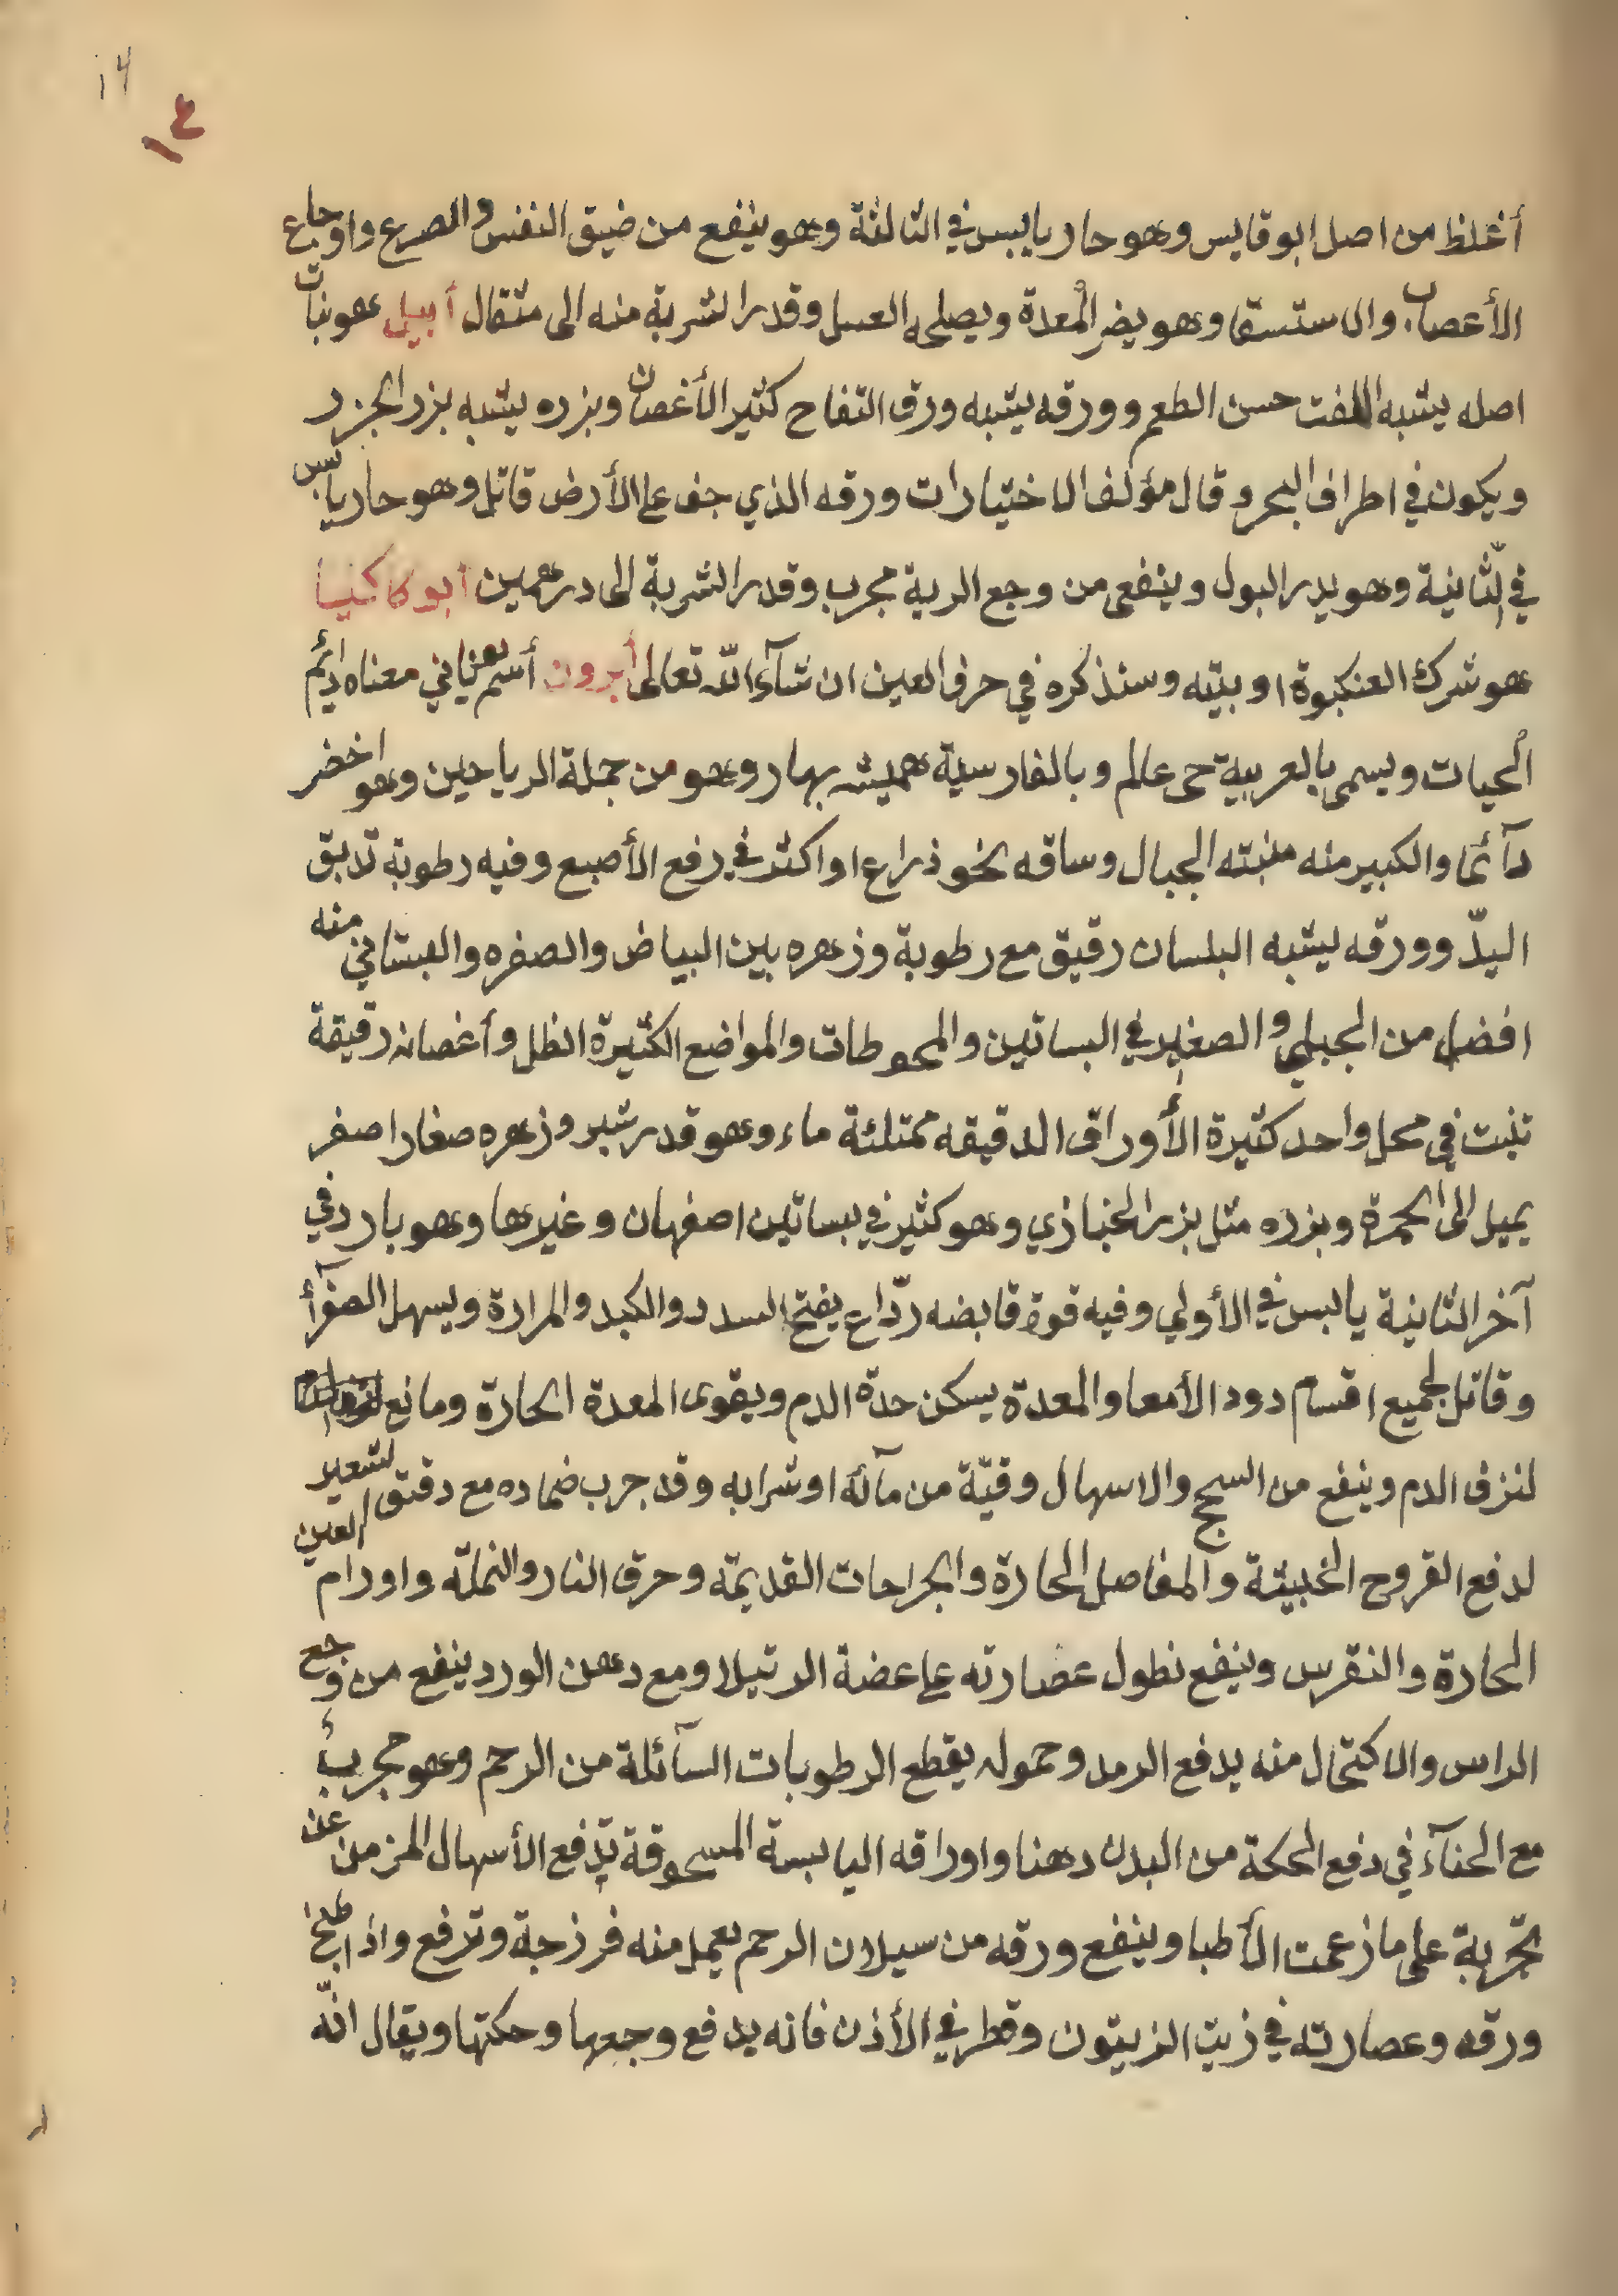 ١٤
١٤
أغلظ من اصل ابوقايس وهو حار يابس في الثالثة وهو ينفع من ضيق النفس والصرع واوجاع
الأعصاب والاستسقا وهو يضر المعدة ويصلحه العسل وقدر الشربة منه الى مثقال أبيل هو نبات
اصله يشبه اللفت حسن الطعم وورقه يشبه ورق التفاح كثير الأغصان وبزره يشبه بزر الجزر
ويكون في اطراف البحر وقال مؤلف الاختيارات ورقه الذي جف على الأرض قاتل وهو حار يابس
في الثانية وهو يدر البول وينفع من وجع الرية مجرب وقدر الشربة الى درهمين ابو كاكيا
هو شرك العنكبوة او بيته وسنذكره في حرف العين ان شآء الله تعالى أبرون أسم يوناني معناه دائم
الحيات ويسمى بالعربية حى عالم وبالفارسية هميشه بهار وهو من جملة الرياحين وهو اخضر
دآئما والكبير منه منبته الجبال وساقه نحو ذراع او اكثر في رفع الأصبع وفيه رطوبة تدبق
اليدّ وورقه يشبه البلسان رقيق مع رطوبة وزهره بين البياض والصفره والبستاني منه
افضل من الجبلي والصغير في البساتين والمحوطات والمواضع الكثيرة الظل وأغصانه رقيقة
تنبت في محل واحد كثيرة الأوراق الدقيقه ممتلئة ماء وهو قدر شبر وزهره صغار اصفر
يميل الى الحمرة وبزره مثل بزر الخبازي وهو كثير في بساتين اصفهان وغيرها وهو بارد في
آخر الثانية يابس في الأولي وفيه قوة قابضه ردّاع يفتح السدد والكبد والمرارة ويسهل الصفرآأ
وقاتل لجميع اقسام دود الأمعا والمعدة يسكن حدة الدم ويقوى المعدة الحارة ومانع
لنزف الدم وينفع من السحج والاسهال وقيّة من مآئه او شرابه وقد جرب ضماده مع دقيق الشعير
لدفع القروح الخبيثة والمفاصل الحارة والجراحات القديمة وحرق النار والنملة واورام العين
الحارة والنقرس وينفع نطول عصارته على عضة الرتيلا ومع دهن الورد ينفع من وجع
الراس والاكتحال منه يدفع الرمد وحموله يقطع الرطوبات السآئلة من الرحم وهو مجرب
مع الحنآء في دفع الحكة من البدن دهنا واوراقه اليابسة المسحوقة تدفع الأسهال المزمن عن
تجربة على ما زعمت الأطبا وينفع ورقه من سيلان الرحم يعمل منه فرزجة وترفع واذا طبخ
ورقه وعصارته في زيت الزيتون وقطر في الأذن فانه يدفع وجعها وحكتها ويقال انّه